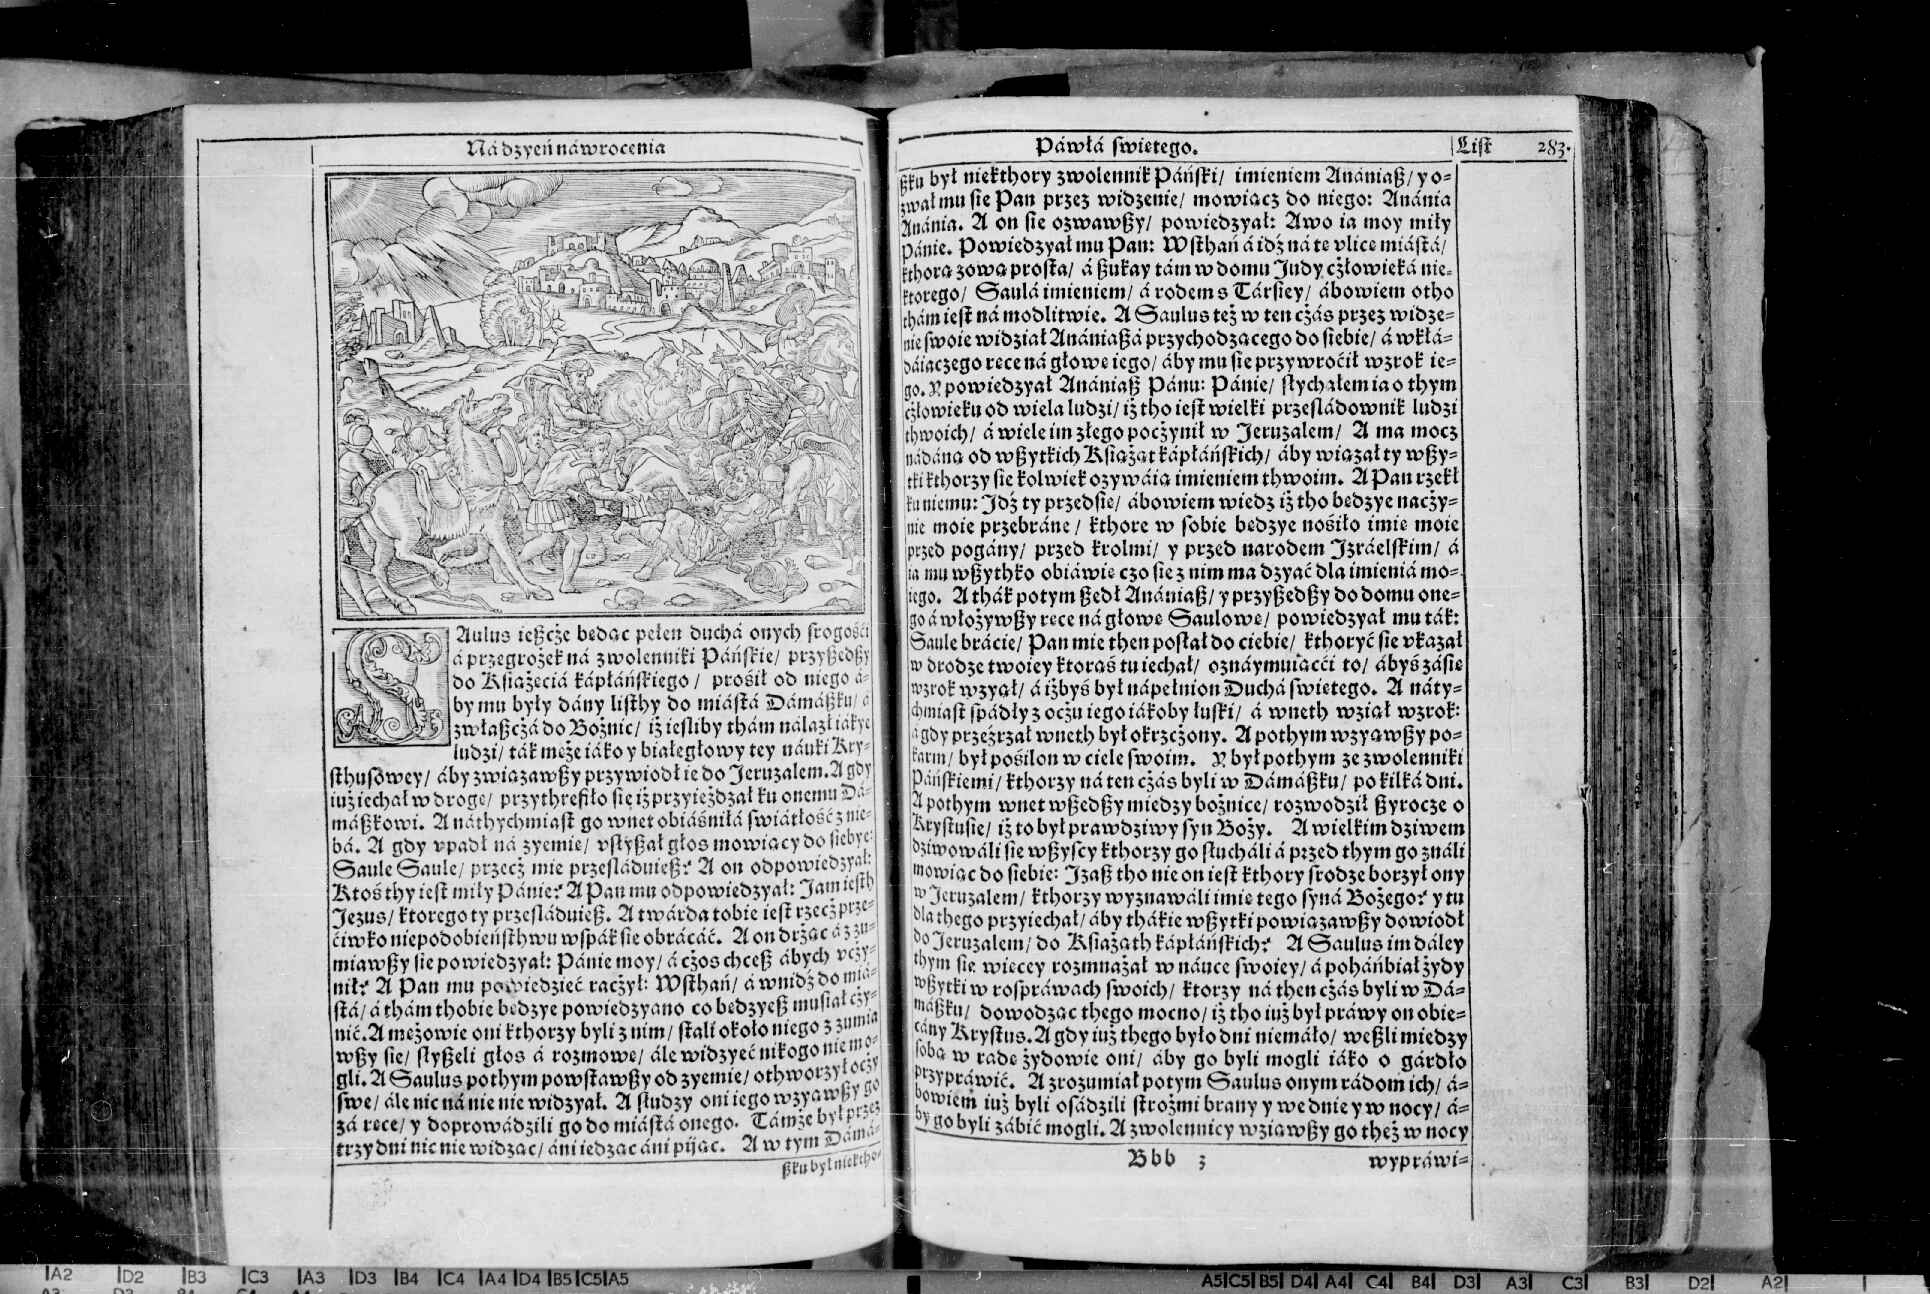 Ná dzyeń náwrocenia
SAulus ieſzcże bedąc pełen duchá onych srogośći
á przegrożek ná zwolenniki Páńskie/ przyſzedſzy
do Książećiá kápłáńskiego/ prośił od niego á-
by mu były dány listhy do miástá Dámáſzku/ á
zwłaſzcżá do Bożnic/ iż iesliby thám nálazł iákye
ludzi/ ták męże iáko y białegłowy tey náuki Kry-
sthusowey/ áby związawſzy przywiodł ie do Jeruzalem. A gdy
iuż iechał w drogę/ przythrefiło się iż przyieżdzał ku onemu Dá-
máſzkowi. A náthychmiast go wnet obiáśniłá światłość z nie-
bá. A gdy vpadł ná zyemię/ vsłyſzał głos mowiący do siebye:
Saule Saule/ przecż mie przesláduieſz? A on odpowiedzyał:
Ktoś thy iest miły Pánie? A Pan mu odpowiedzyał: Jam iesth
Jezus/ ktorego ty przesláduieſz. A twárda tobie iest rzecż prze-
ćiwko niepodobieństhwu wspák się obrácáć. A on drżąc á z zu-
miawſzy się powiedzyał: Pánie moy/ á cżos chceſz ábych vcży-
nił? A Pan mu powiedzieć racżył: Wsthań/ á wnidź do miá-
stá/ á thám thobie bedzye powiedzyano co bedzyeſz musiał cży-
nić. A mężowie oni kthorzy byli z nim/ stali około niego z zumia
wſzy się/ słyſzeli głos á rozmowę/ ále widzyeć nikogo nie mo-
gli. A Saulus pothym powstawſzy od zyemie/ othworzył ocży
swe/ ále nic ná nie nie widzyał. A słudzy oni iego wzyąwſzy go
zá rękę/ y doprowádzili go do miástá onego. Támże był przez
trzy dni nic nie widząc/ áni iedząc áni pijąc. A w tym Dámá-
ſzku był niektho-
Páwłá świętego.
List 283.
ſzku był niekthory zwolennik Páński/ imieniem Ananiaſz/ y o-
zwał mu się Pan przez widzenie/ mowiącz do niego: Anánia
Anánia. A on się ozwawſzy/ powiedzyał: Awo ia moy miły
Pánie. Powiedzyał mu Pan: Wsthań á idź ná te vlice miástá/
kthorą zową prosta/ á ſzukay tám w domu Judy cżłowieká nie-
ktorego/ Saulá imieniem/ á rodem s Társiey/ ábowiem otho
thám iest ná modlitwie. A Saulus też w ten cżás przez widze-
nie swoie widział Anániaſzá przychodzącego do siebie/ á wkłá-
dáiączego ręce ná głowę iego/ áby mu się przywroćił wzrok ie-
go. Y powiedzyał Ananiaſz Pánu: Pánie/ słychałem ia o thym
cżłowieku od wiela ludzi/ iż tho iest wielki przesládownik ludzi
thwoich/ á wiele im złego pocżynił w Jeruzalem/ A ma mocz
nádáną od wſzytkich Książąt kápłáńskich/ áby wiązał ty wſzy-
tki kthorzy się kolwiek ozywáią imieniem thwoim. A Pan rzekł
ku niemu: Jdź ty przedsię/ ábowiem wiedz iż tho bedzye nacży-
nie moie przebráne/ kthore w sobie bedzye nośiło imię moie
przed pogány/ przed krolmi/ y przed narodem Jzráelskim/ á
ia mu wſzythko obiáwię czo się z nim ma dzyać dla imieniá mo-
iego. A thák potym ſzedł Anániaſz/ y przyſzedſzy do domu one-
go á włożywſzy ręce ná głowę Saulowe/ powiedzyał mu ták:
Saule brácie/ Pan mie then posłał do ciebie/ kthoryć się vkazał
w drodze twoiey ktorąś tu iechał/ oznáymuiącći to/ ábyś zásię
wzrok wzyął/ á iżbyś był nápełnion Duchá świętego. A náty-
chmiast spádły z ocżu iego iákoby łuski/ á wneth wziął wzrok:
á gdy przeźrzał wneth był okrzcżony. A pothym wzyąwſzy po-
karm/ był pośilon w ciele swoim. Y był pothym ze zwolenniki
Páńskiemi/ kthorzy ná ten cżás byli w Dámáſzku/ po kilká dni.
A pothym wnet wſzedſzy miedzy bożnice/ rozwodził ſzyrocze o
Krystusie/ iż to był prawdziwy syn Boży. A wielkim dziwem
dziwowáli się wſzyscy kthorzy go słucháli á przed thym go ználi
mowiąc do siebie: Jzaſz tho nie on iest kthory srodze borzył ony
w Jeruzalem/ kthorzy wyznawáli imię tego syná Bożego? y tu
dla thego przyiechał/ áby thákie wſzytki powiązawſzy dowiodł
do Jeruzalem/ do Książąth kápłáńskich? A Saulus im dáley
thym się więcey rozmnażał w náuce swoiey/ á poháńbiał żydy
wſzytki w rospráwach swoich/ ktorzy ná then cżás byli w Dá-
máſzku/ dowodząc thego mocno/ iż tho iuż był práwy on obie-
cány Krystus. A gdy iuż thego było dni niemáło/ weſzli miedzy
sobą w radę żydowie oni/ áby go byli mogli iáko o gárdło
przypráwić. A zrozumiał potym Saulus onym rádom ich/ á-
bowiem iuż byli osádzili strożmi brany y we dnie y w nocy/ á-
by go byli zábić mogli. A zwolennicy wziąwſzy go theż w nocy
Bbb 3 wypráwi-
A2 D2 B3 C3 A3 D3 B4 C4 A4 D4 B5 C5 A5
A5 C5 B5 D4 A4 C4 B4 D3 A3 C3 B3 D2 A2